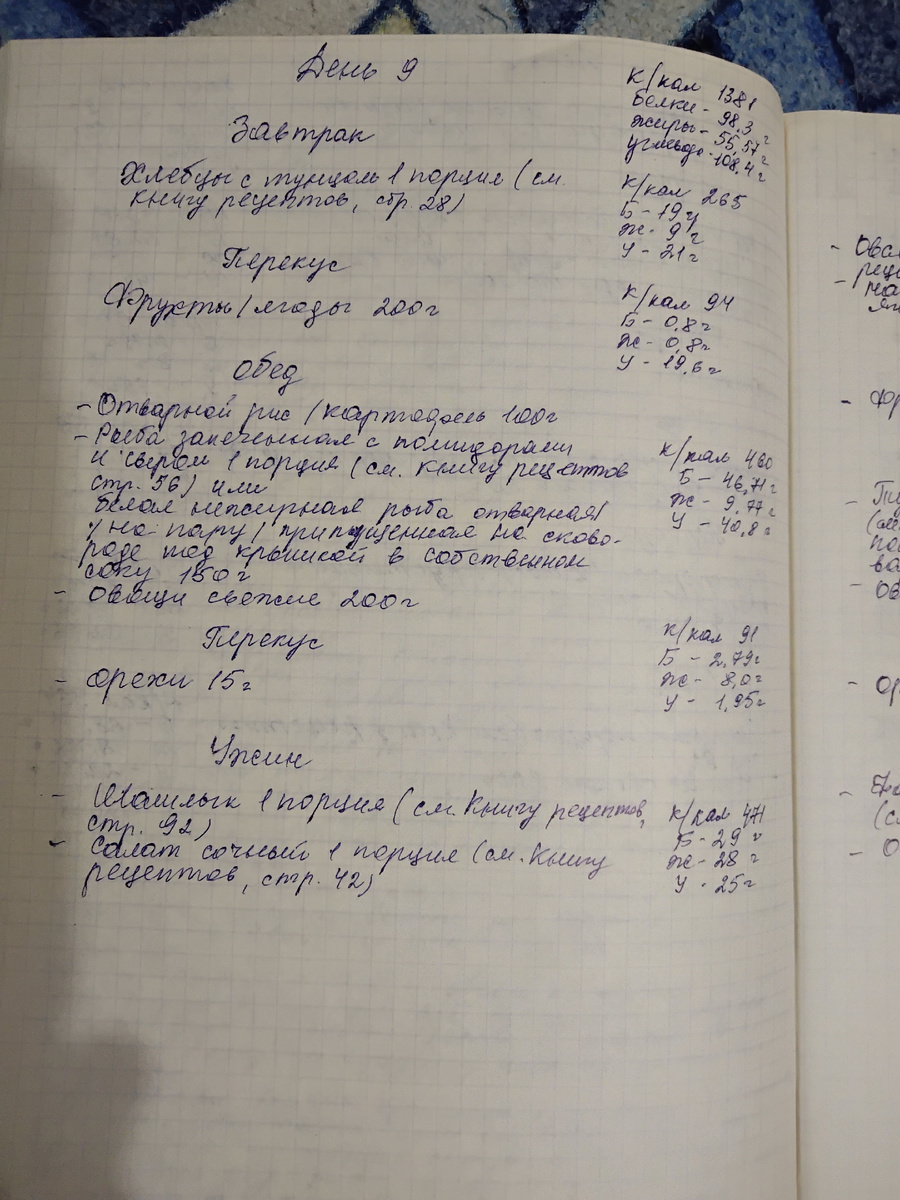 День 9
к/кал 1381
белки - 98,3 г
жиры - 55,57 г
углеводо - 108,4 г
Завтрак
Хлебцы с тунцом 1 порция (см.
книгу рецептов, стр. 28)
к/кал 265
Б - 19 г
Ж - 9 г
У - 21 г
Перекус
Фрукты/ягоды 200г
к/кал 94
Б - 0,8 г
Ж - 0,8 г
У - 19,6 г
Обед
- Отварной рис/картофель 100г
- Рыба запеченная с помидорами
и сыром 1 порция (см. книгу рецептов
стр. 56) или
белая нежирная рыба отварная/
/на пару/припущенная на сково-
роде под крышкой в собственном
соку 150г
- Овощи свежие 200г
к/кал 460
Б - 46,71 г
Ж - 9,77 г
У - 40,8 г
Перекус
- орехи 15г
к/кал 91
Б - 2,79 г
Ж - 8,0 г
У - 1,95 г
Ужин
- Шашлык 1 порция (см. Книгу рецептов,
стр. 92)
- Салат сочный 1 порция (см. Книгу
рецептов, стр. 42)
к/кал 471
Б - 29 г
Ж - 28 г
У - 25 г